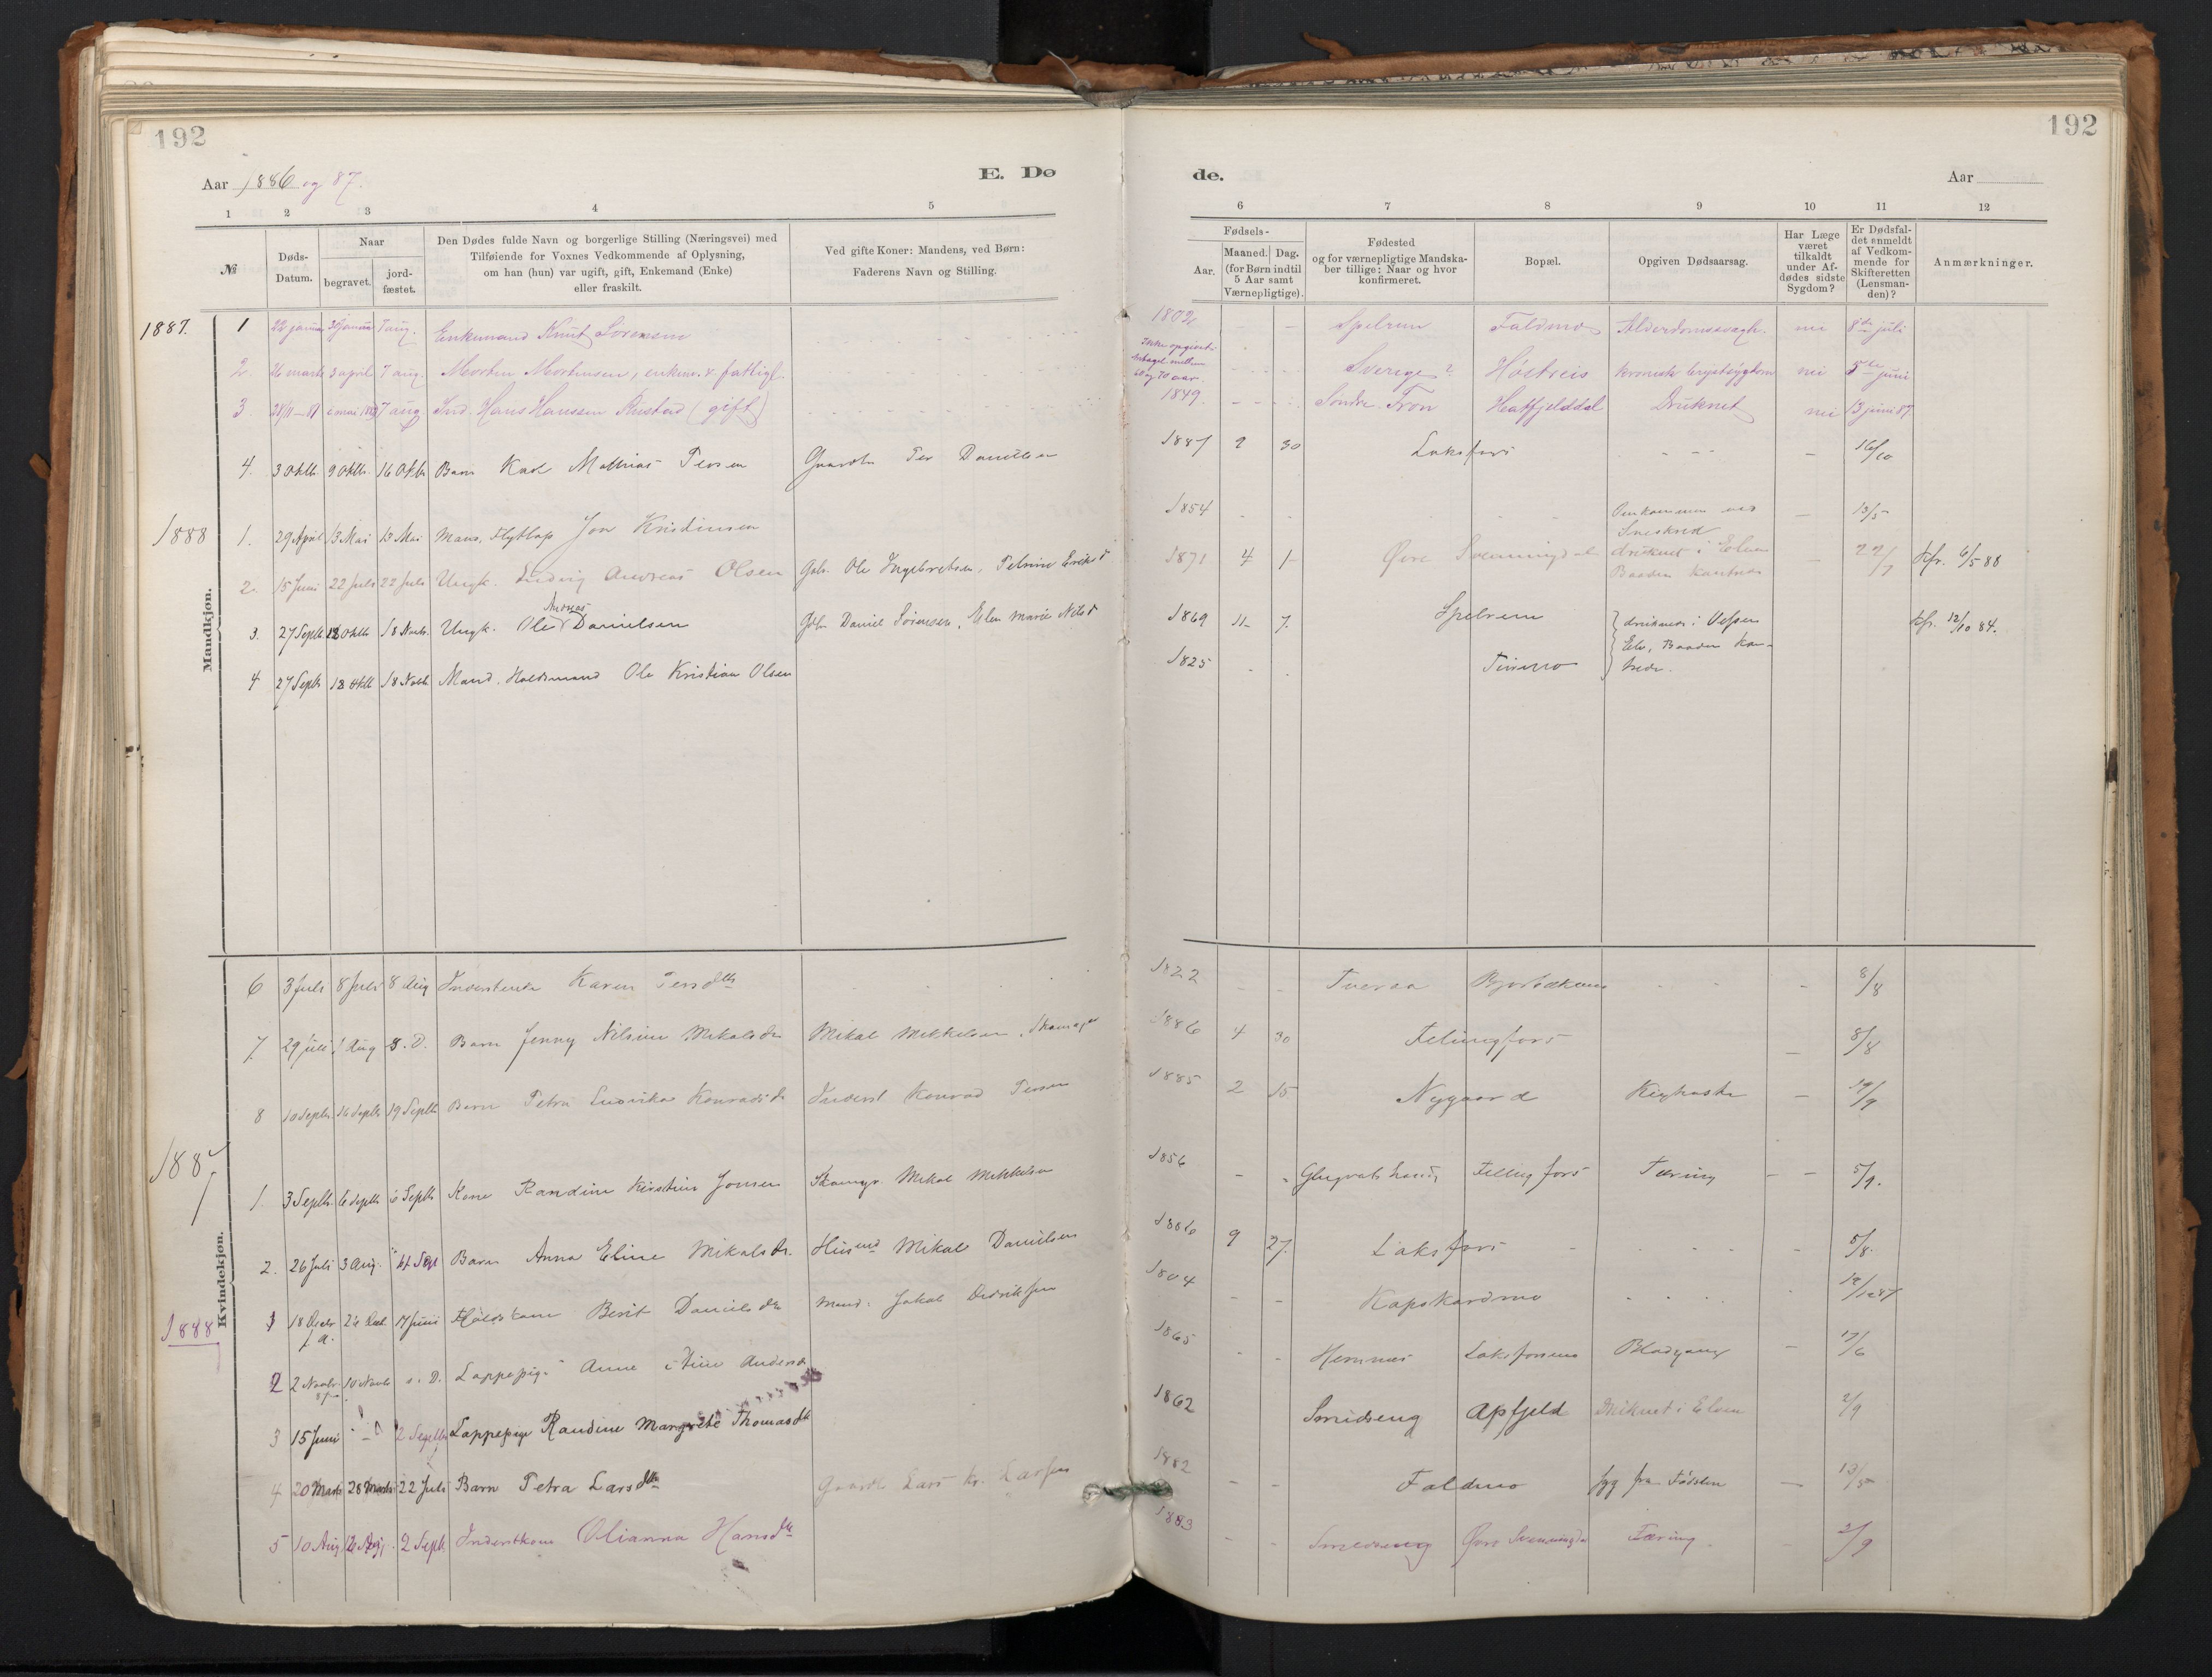 192
192
Aar 1886 og 87.
E. Dø
de.
Aar
1 2 3 4 5
6 7 8 9 10 11 12
№
Døds-Datum.
Naar
begravet.
jord-fæstet.
Den Dødes fulde Navn og borgerlige Stilling (Næringsvei) med
Tilføiende for Voxnes Vedkommende af Oplysning,
om han (hun) var ugift, gift, Enkemand (Enke)
eller fraskilt.
Ved gifte Koner: Mandens, ved Børn:
Faderens Navn og Stilling.
Fødsels-
Aar.
Maaned. Dag.
(for Børn indtil
5 Aar samt
Værnepligtige).
Fødested
og for værnepligtige Mandska-
ber tillige: Naar og hvor
konfirmeret.
Bopæl.
Opgiven Dødsaarsag.
Har Læge
været
tilkaldt
under Af-
dødes sidste
Sygdom?
Er Dødsfal-
det anmeldt
af Vedkom-
mende for
Skifteretten
(Lensman-
den)?
Anmærkninger.
Mandkjøn.
1887. 1 7 aug. Enkemand Knut Sørensen 1802 Spelrem Faldmo nei 8de juli
2. 26 marts 3 april 7 aug. Morten Mortensen, enkem. & fattigl. Ikke opgivet mellem 60 og 70 aar. Sverige? nei 5te juni
3. 28/11-81 7 aug Ind. Hans Hanssen Rustad (gift) 1849. Søndre Fron Hatfjelddal Druknet nei 13 juni 87
4. 3 Oktb. 9 Oktb. 16 Oktb Barn Karl Mathias Persen Gaardbr Per Danielsen 1887 9 30 Laksfors 16/10
1888 1. 29 April 13 Mai 13 Mai Mand, Flytlap Jon Kristiansen 1854 Omkommen ved Sneskred 13/5
2. 15 Juni 22 Juli 22 Juli Ungk. Ludvig Andreas Olsen Gbr. Ole Ingebretsen, Petrine Eriksd 1871 4 1 Øvre Svenningdal druknet i Elven Baaden kantrede 22/7 kfr. 6/5-88
3. 27 Septb 12 Oktb 18 Novb. Ungk. Ole Andreas Danielsen Gbr Daniel Sørensen, Elen Marie Nilsd 1869 11 7. Spelrem druknede i Vefsen Elv, Baaden kan-trede. kfr. 12/10 84.
4 27 Septb 12 Oktb 18 Novb. Mand. Ole Kristian Olsen 1825
Kvindekjøn.
6 3 Juli 8 Juli 8 Aug Inderstenke Karen Persdtr 1822 Tveraa 8/8
7. 29 juli 1 Aug 8. D. Barn Jenny Nilsine Mikalsdr Mikal Mikkelsen, Skomager 1886 4 30 Fellingfors 8/8
8 10 Septb 16 Septb 19 Septb Barn Petra Ludvika Konradsdr Inderst Konrad Persen 1885 2 15 Nygaard Kighoste 19/9
1887 1. 3 Septb. 6 Septb Septb Kone Randine Kirstine Jonsen Skomgr. Mikal Mikkelsen 1856 Fellingfors Tæring 5/9.
2. 26 Juli 3 Aug. 4 Sept Barn Anna Eline Mikalsdr. Husmd Mikal Danielsen 1886 9 27. Laksfors 5/8.
1888 1 18 Decbr f. A. 26 Decb 17 Juni Berit Danielsdtr Mand: Jakob Didriksen 1804 Kapskardmo
2 2 Novbr 10 Novb s. D. Lappepige Anne Stine Andersdr 1865 Hemnes Laksforsen 17/6
3 15 Juni 2 Septb Lappepige Randine Margrete Thomasdtr 1862 Smidseng Apfjeld Druknet i Elven 2/9
4 20 Marts 28 Marts 22 Juli Barn Petra Larsdtr Gaardb Lars Kr. Larsen 1882 Faldmo syg fra Fødslen 13/5
5 10 Aug 2 Septb. Inderstkone Olianna Hansdtr 1883 Smedseng Øvre Svenningda Tæring 2/9